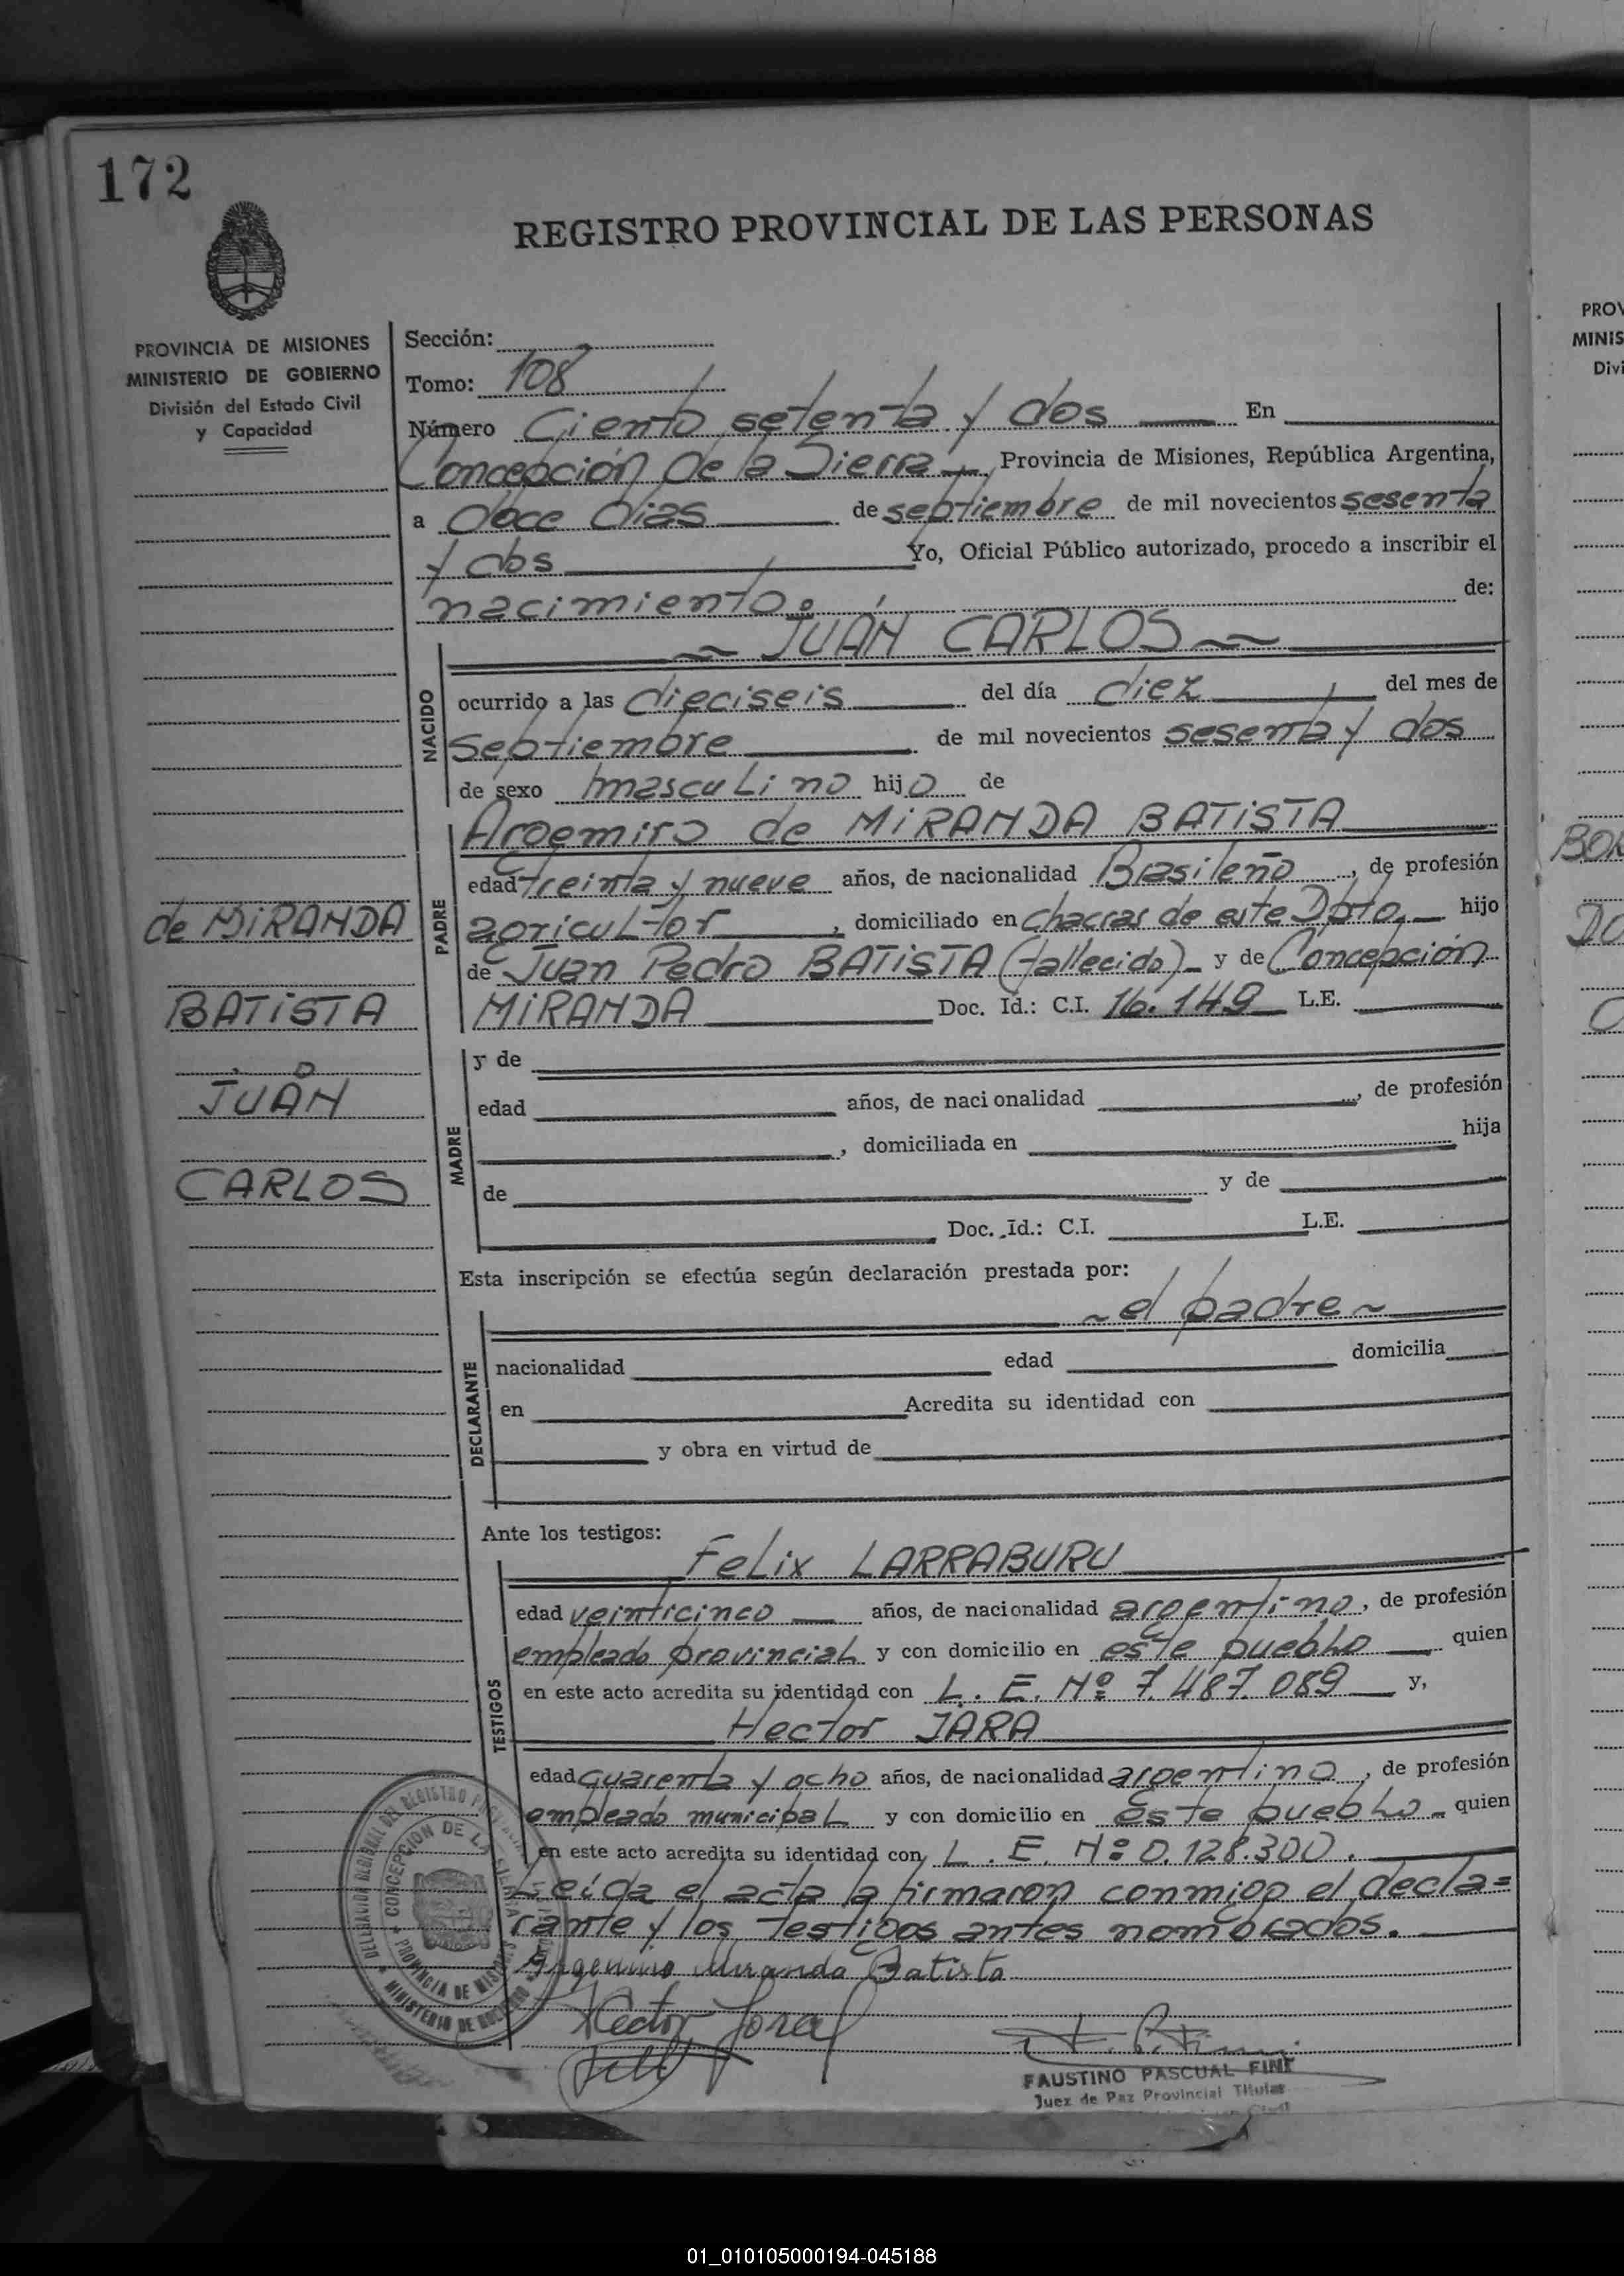 172
REGISTRO PROVINCIAL DE LAS PERSONAS
PROVINCIA DE MISIONES
MINISTERIO DE GOBIERNO
División del Estado Civil
y Capacidad
Sección:
Tomo: 108
Número Ciento setenta y dos En
Concepción de la Sierra, Provincia de Misiones, República Argentina,
a doce dias de septiembre de mil novecientos sesenta
y dos Yo, Oficial Público autorizado, procedo a inscribir el
nacimiento. de:
JUAN CARLOS
NACIDO
ocurrido a las dieciseis del día diez del mes de
septiembre de mil novecientos sesenta y dos
de sexo masculino hijo de
PADRE
Argemiro de MIRANDA BATISTA
edad treinta y nueve años, de nacionalidad Brasileño, de profesión
agricultor, domiciliado en chacras de este Dpto. hijo
de Juan Pedro BATISTA (fallecido) y de Concepción
MIRANDA Doc. Id.: C.I. 16.149 L.E.
de MIRANDA
BATISTA
JUAN
CARLOS
MADRE
y de
edad años, de nacionalidad , de profesión
, domiciliada en hija
de y de
Doc. Id.: C.I. L.E.
Esta inscripción se efectúa según declaración prestada por:
~ el padre ~
DECLARANTE
nacionalidad edad domicilia
en Acredita su identidad con
y obra en virtud de
Ante los testigos:
TESTIGOS
Felix LARRABURU
edad veinticinco años, de nacionalidad argentino, de profesión
empleado provincial y con domicilio en este pueblo quien
en este acto acredita su identidad con L. E. Nº 7.487.089 y,
Hector JARA
edad cuarenta y ocho años, de nacionalidad argentino, de profesión
empleado municipal y con domicilio en este pueblo quien
en este acto acredita su identidad con L. E. Nº 0.128.300.
Leída el acta la firmaron conmigo el decla=
rante y los testigos antes nombrados.
Miranda Batista
Hector Jara
FAUSTINO PASCUAL FINE
Juez de Paz Provincial Titular
DELEGACION REGIONAL DEL REGISTRO
CONCEPCION DE LA SIERRA
PROVINCIA DE MISIONES
MINISTERIO DE GOBIERNO
PROV
MINIS
Divi
BOR
DO
01_010105000194-045188